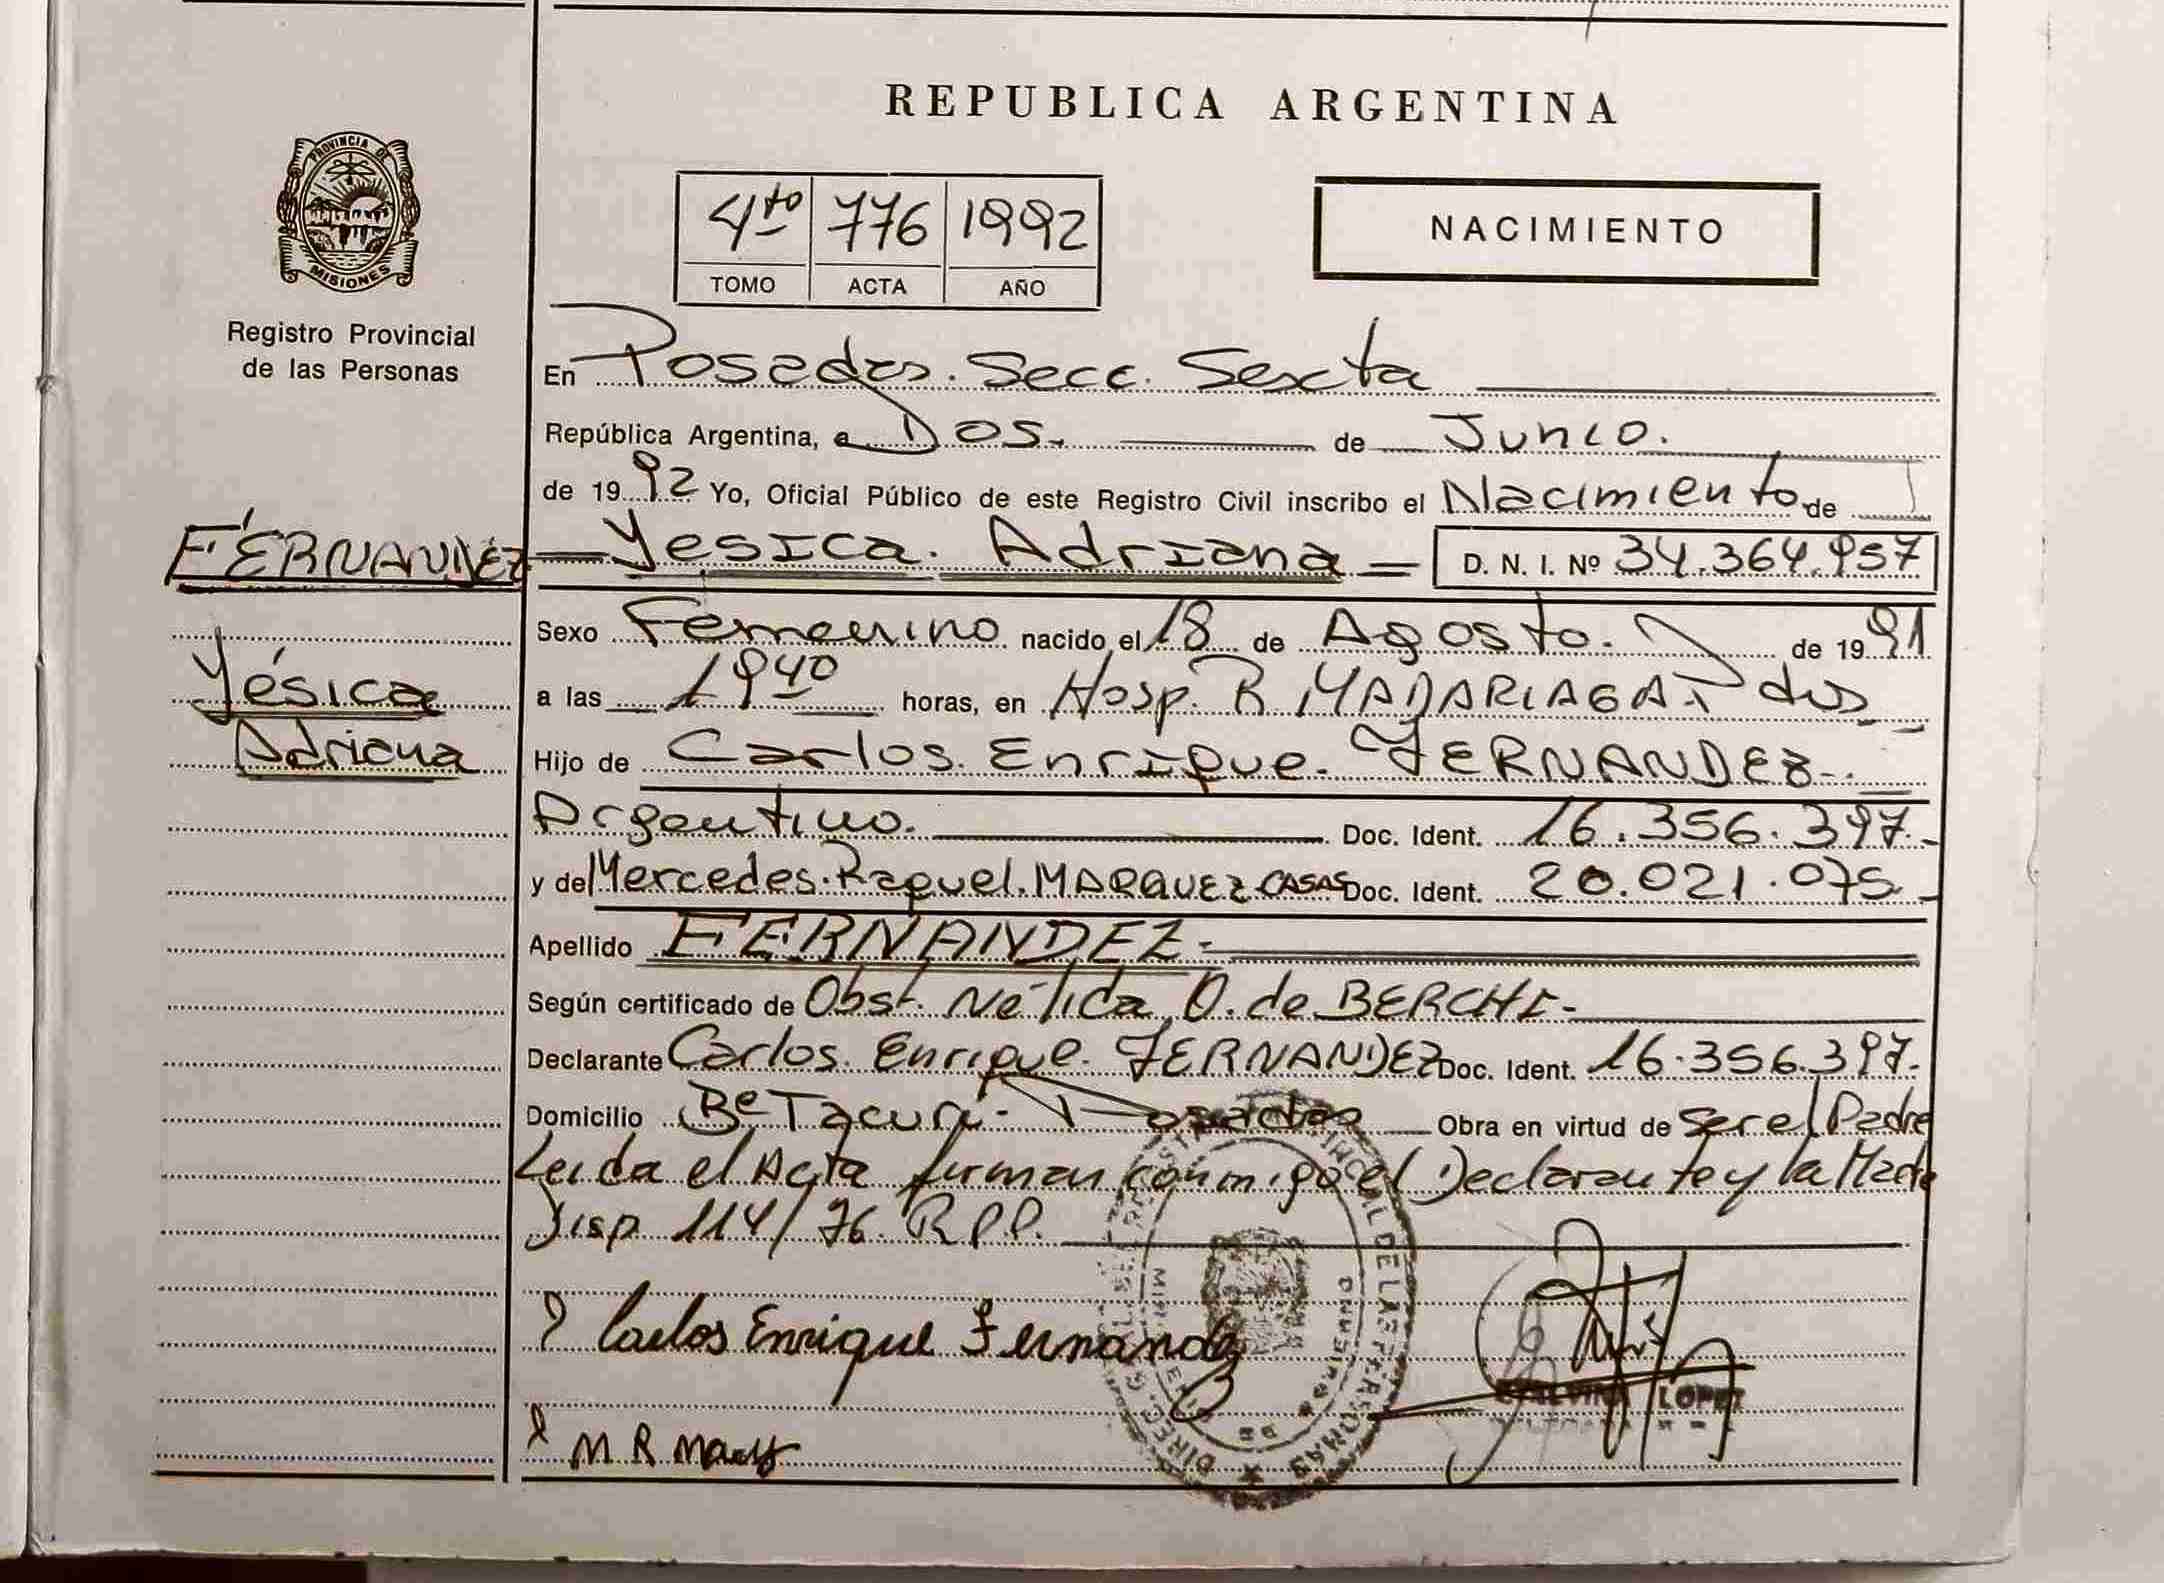 REPUBLICA ARGENTINA
PROVINCIA DE
MISIONES
Registro Provincial
de las Personas
4to 776 1992
TOMO ACTA AÑO
NACIMIENTO
En Posadas. Secc. Sexta
República Argentina, a Dos. de Junio.
de 1992 Yo, Oficial Público de este Registro Civil inscribo el Nacimiento de
FERNANDEZ
Yesica. Adriana D. N. I. Nº 34.364.957
Yésica
Adriana
Sexo Femenino nacido el 18 de Agosto. de 1991
a las 1940 horas, en Hosp. R MADARIAGA Pdas
Hijo de Carlos. Enrique. FERNANDEZ.
Argentino. Doc. Ident. 16.356.397.
y de Mercedes. Raquel. MARQUEZ CASAS Doc. Ident. 20.021.075
Apellido FERNANDEZ.
Según certificado de Obst. Nélida O. de BERCHI
Declarante Carlos. Enrique. FERNANDEZ Doc. Ident. 16.356.397.
Domicilio Bº Tacurí. Posadas Obra en virtud de ser el Padre
Leida el Acta firman conmigo el Declarante y la Madre
Disp. 114/76. R.P.P.
Carlos Enrique Fernandez
LOPEZ
M R